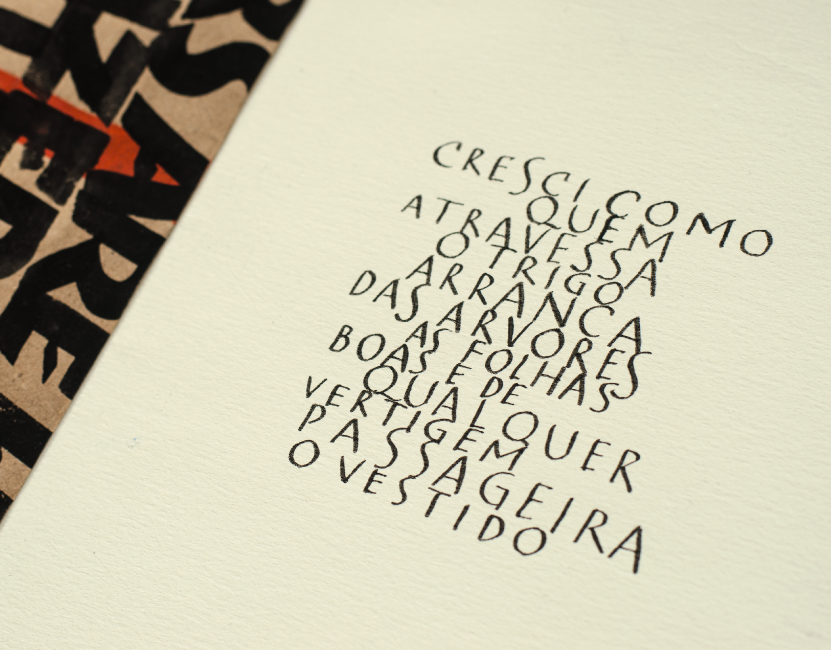 CRESCI COMO
QUEM
ATRAVESSA
O TRIGO
ARRANCA
DAS ARVORES
AS FOLHAS
BOAS E DE
QUALQUER
VERTIGEM
PASSAGEIRA
O VESTIDO